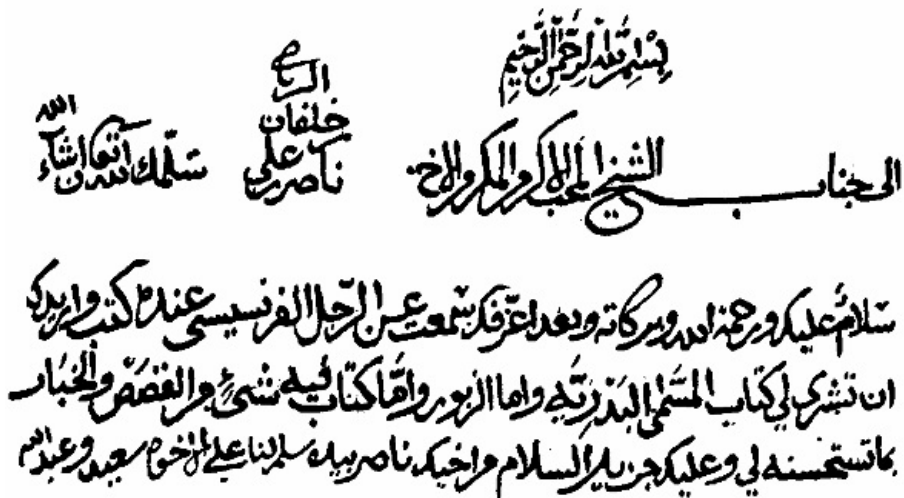 بسم الله الرحمن الرحيم
الى جناب الشيخ المحب الاكرم المكرم الاخ ناصر بن علي خلفان سلمك الله تعالى ان شاء الله
سلام عليك ورحمة الله وبركاته وبعد اعرفك سمعت عن الرجل الفرنسيسي عنده كتب واريدك
ان تشري لي كتاب المسمى البدرية واما الزبور واما كتاب فيه شيء من القصص والخبار
بما تستحسنه لي وعليك جزيل السلام من اخيك ناصر بيده سلم لنا على الاخوه سعيد وعبد الله